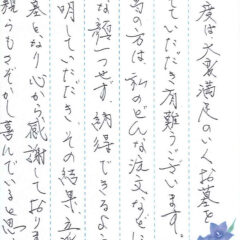 度は大変満足のいくお墓を
ていただき有難うございます。
の方は、私のどんな注文などに
な顔一つせず、納得できるよう
明していただき、その結果、立
墓となり心から感謝しており
親うもさぞかし喜んでいると思